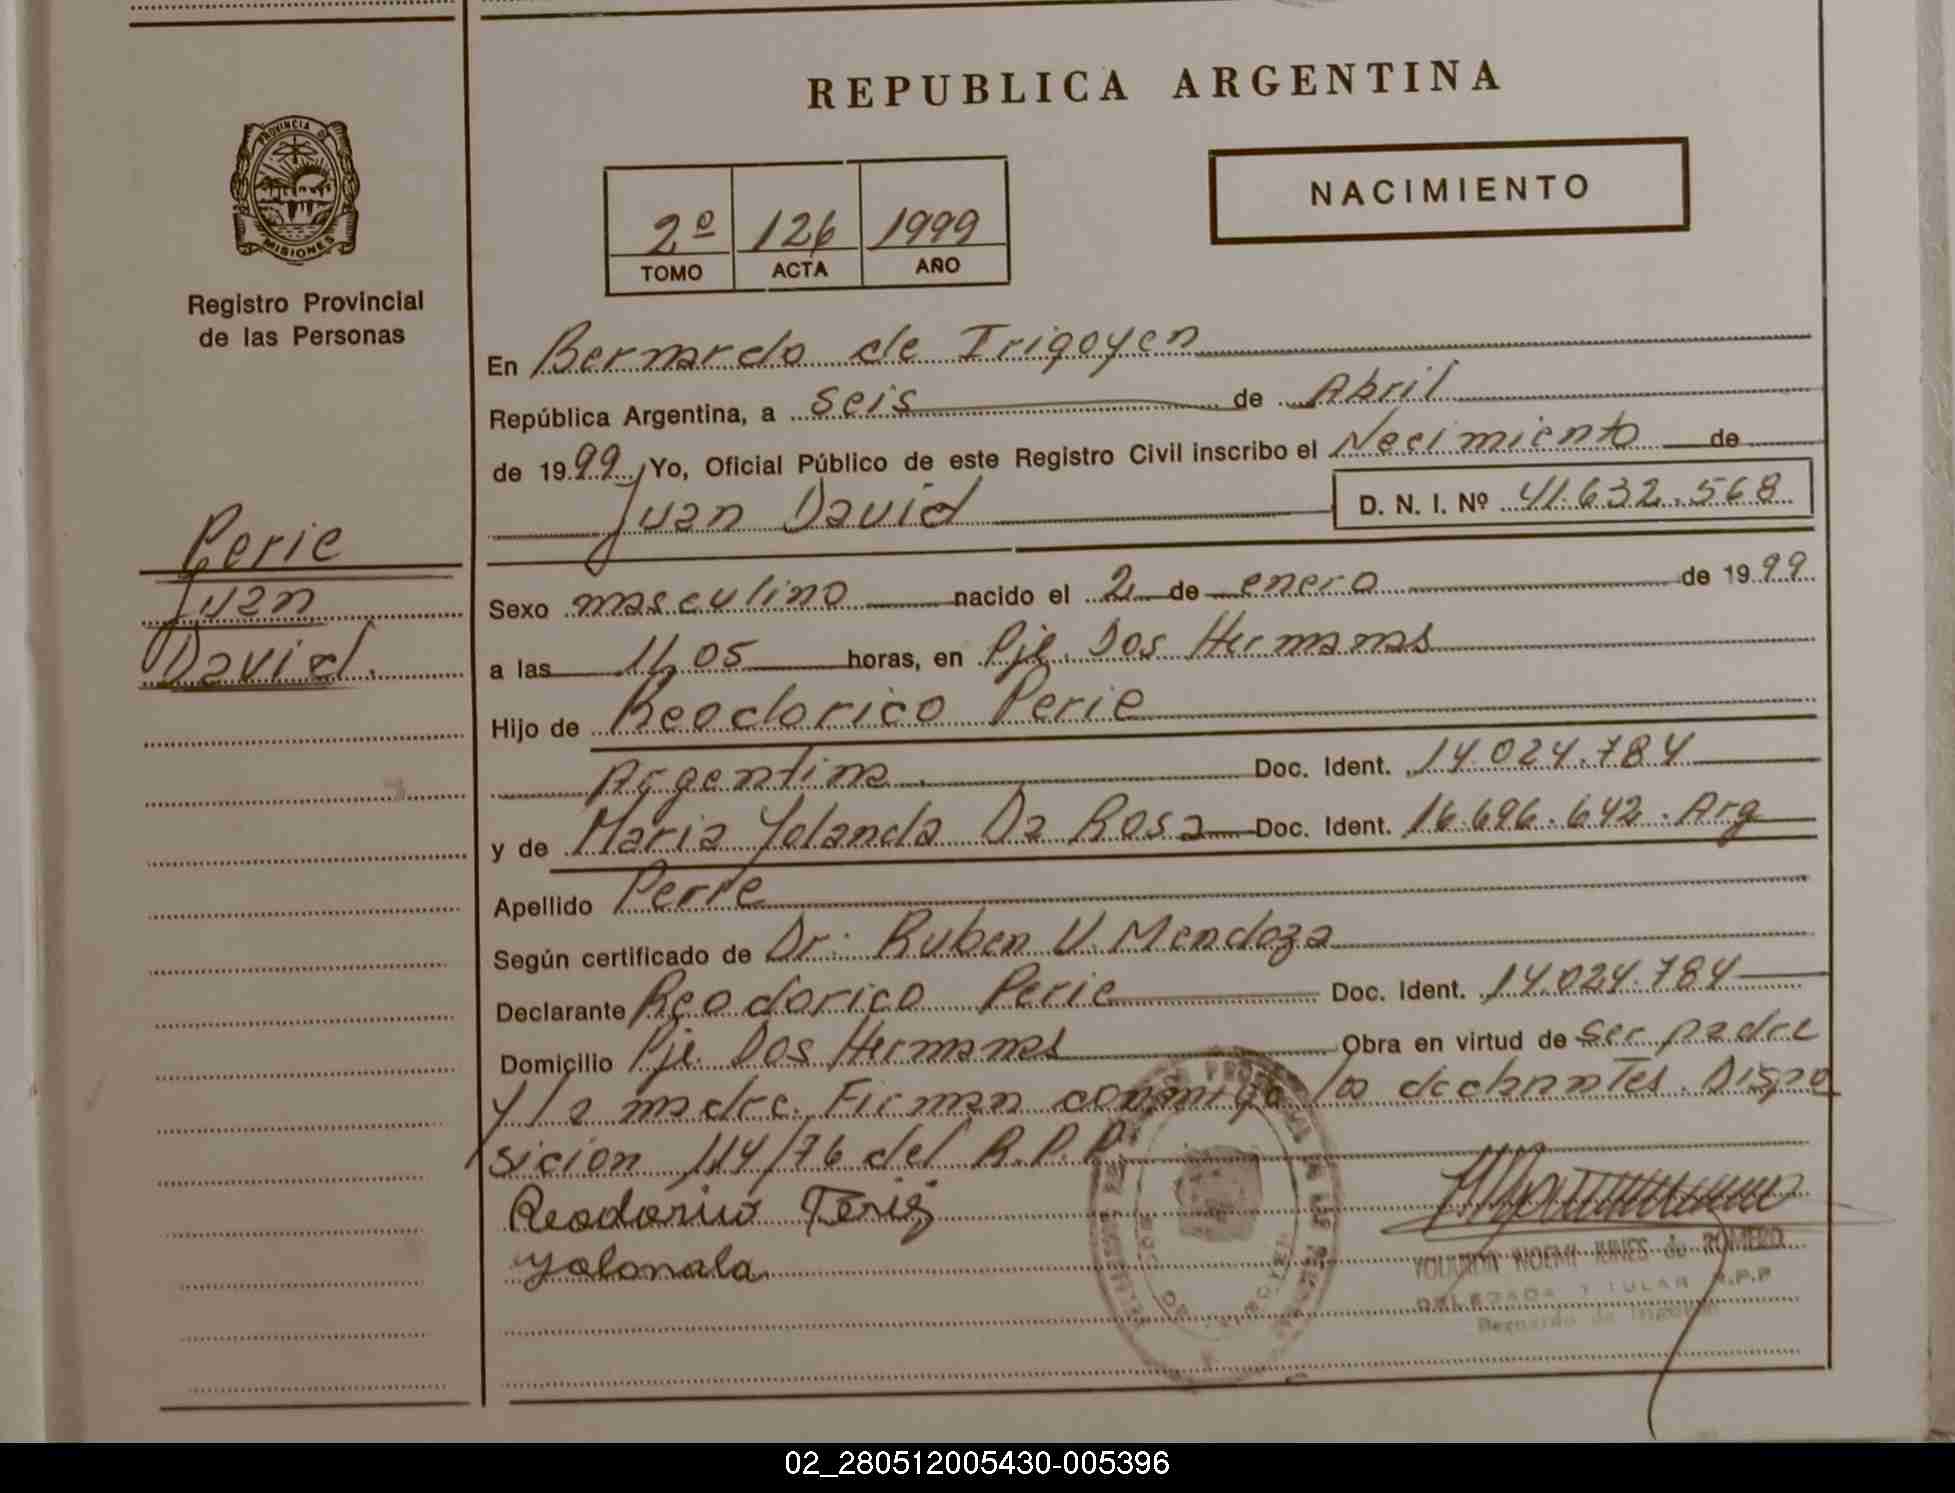 REPUBLICA ARGENTINA
PROVINCIA DE
MISIONES
Registro Provincial
de las Personas
NACIMIENTO
2º 126 1999
TOMO ACTA AÑO
En Bernardo de Irigoyen
República Argentina, a seis de Abril
de 1999, Yo, Oficial Público de este Registro Civil inscribo el Necimiento de
Juan David D. N. I. Nº 41.632.568
Perie
Juan
David.
Sexo masculino nacido el 2 de enero de 1999
a las 11,05 horas, en Pje. Dos Hermanas
Hijo de Reodorico Perie
Argentina. Doc. Ident. 14.024.784
y de Maria Yolanda Da Rosa Doc. Ident. 16.696.642. Arg
Apellido Perie
Según certificado de Dr: Ruben V. Mendoza
Declarante Reodorico Perie Doc. Ident. 14.024.784
Domicilio Pje. Dos Hermanas Obra en virtud de ser padre
y la madre. Firman conmigo los declarantes. Dispo
sicion 114/76 del R.P.P.
Reodorico Perie
Yolanda
YOLANDA NOEMI de ROMERO
DELEGADA TITULAR R.P.P
Bernardo de Irigoyen
02_280512005430-005396